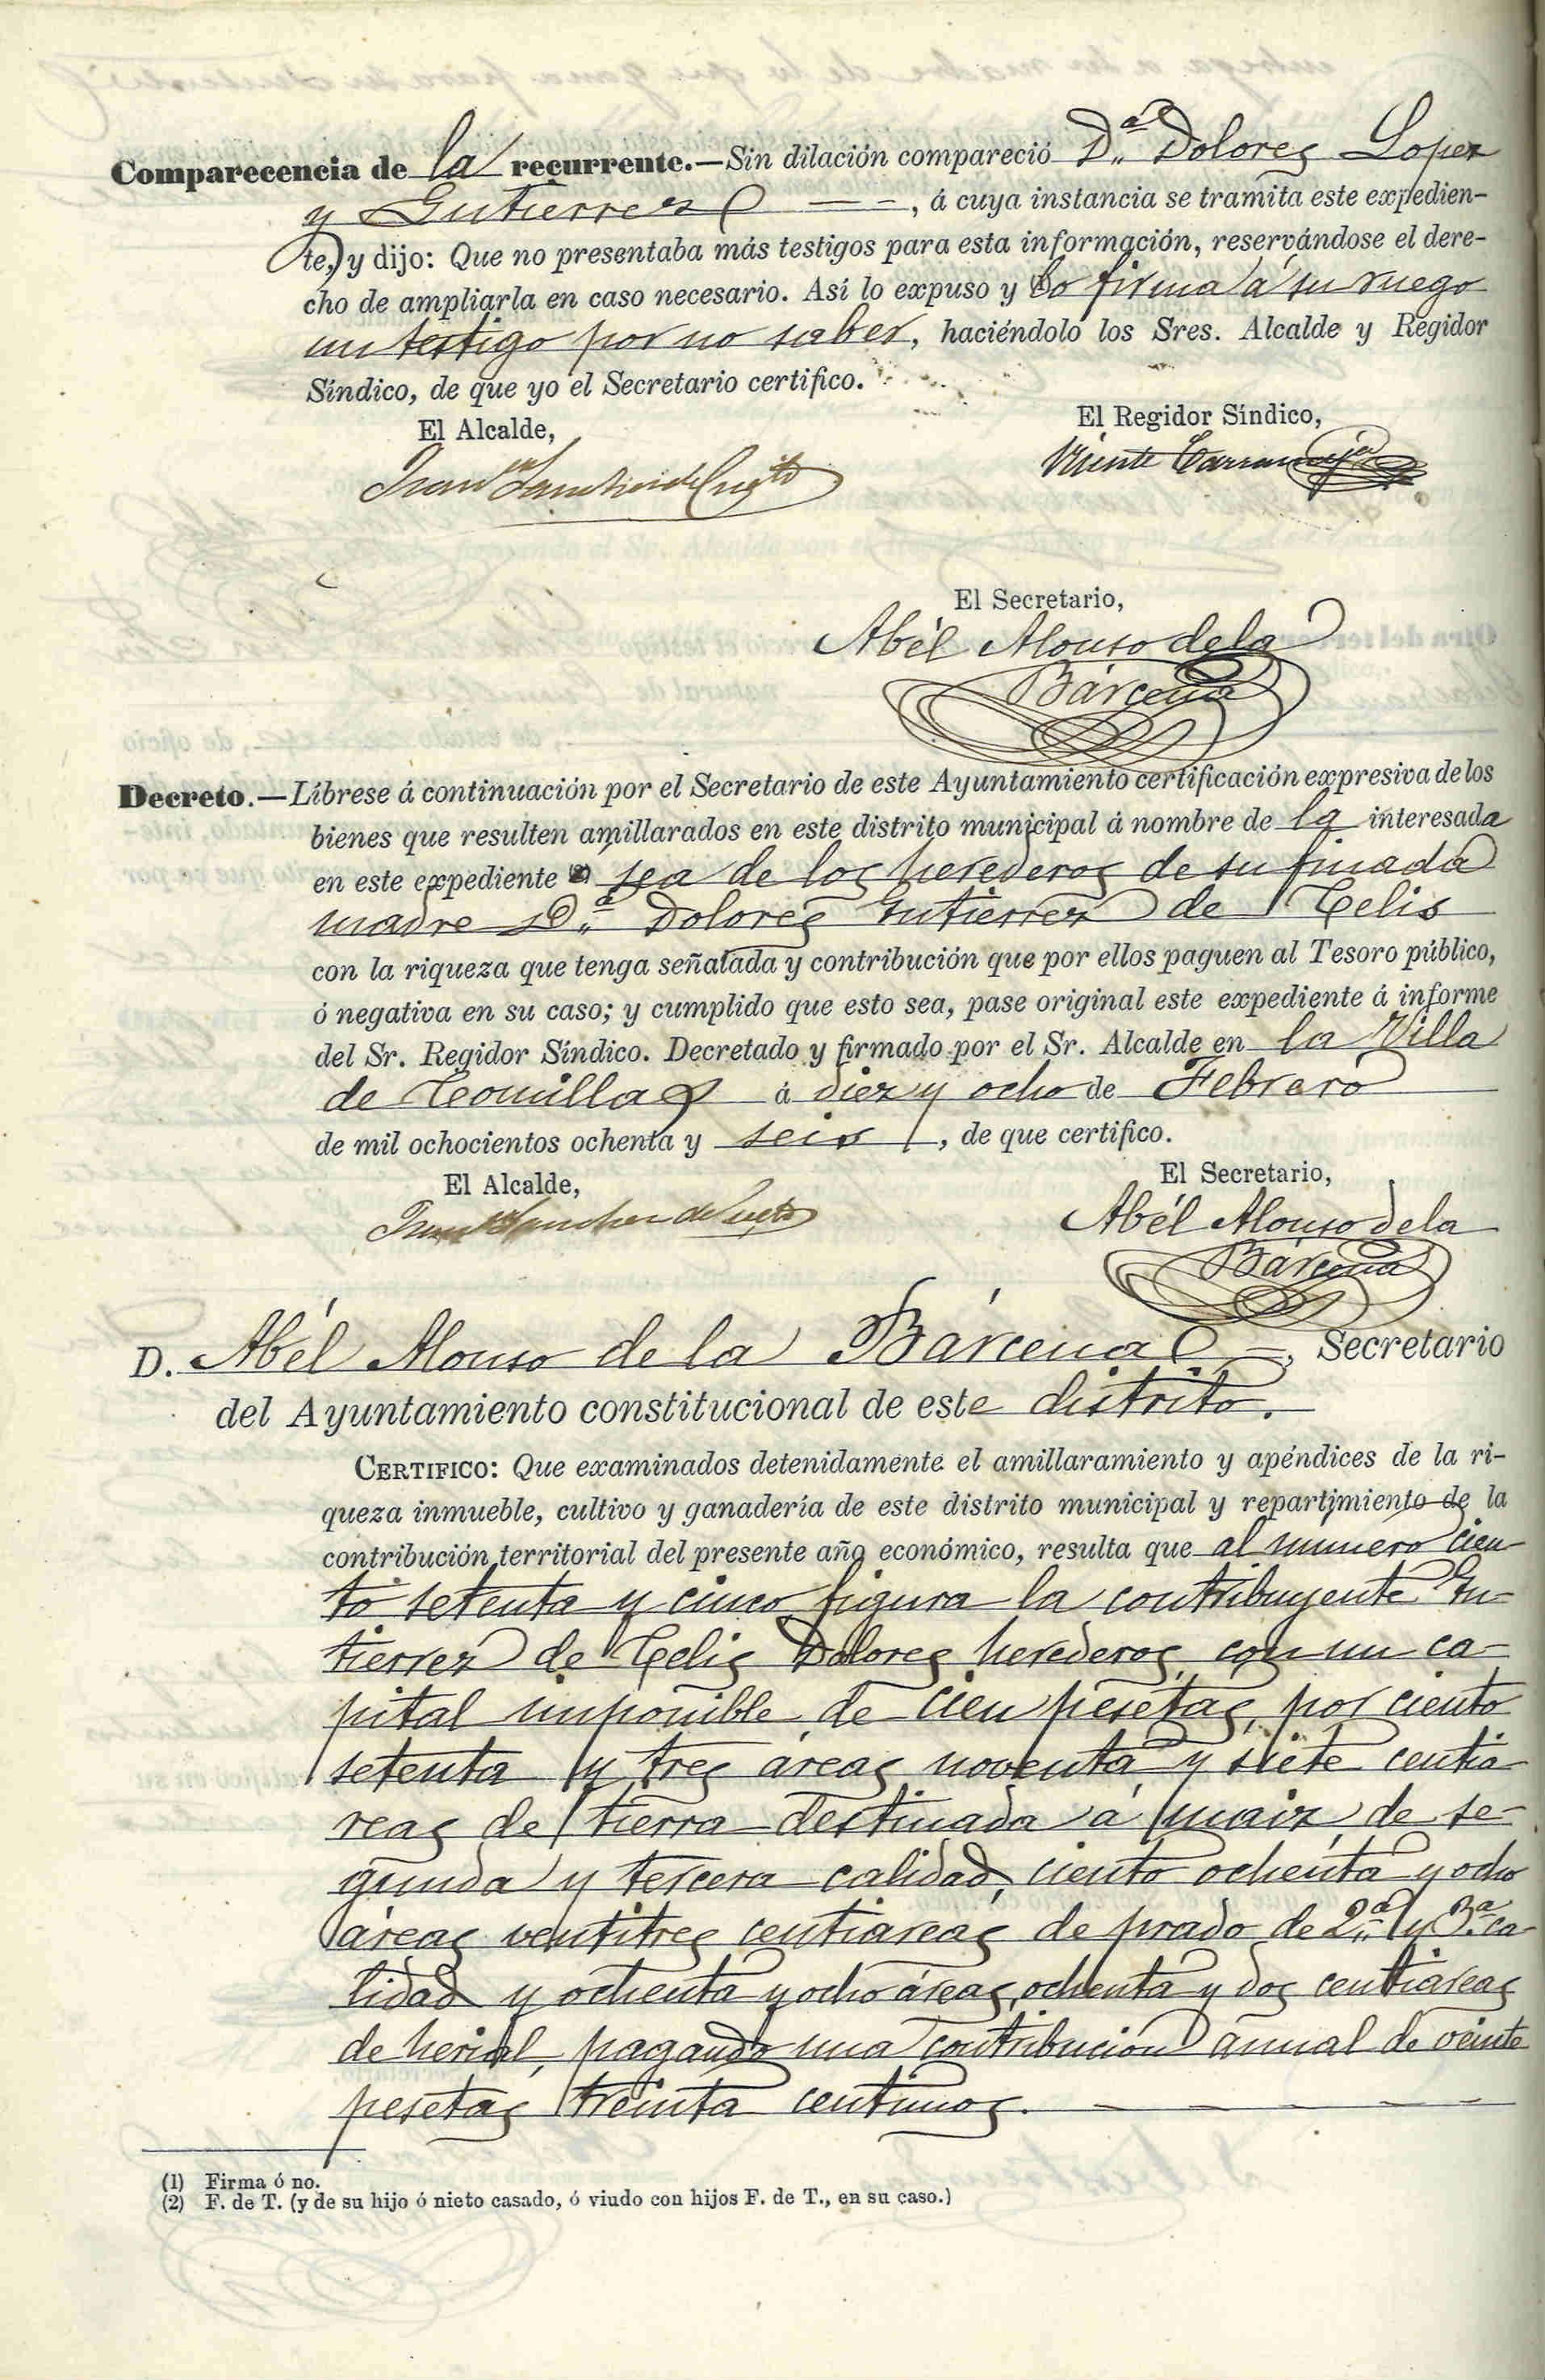 Comparecencia de la recurrente.—Sin dilación compareció D.ª Dolores Lopez
y Gutierrez — –, á cuya instancia se tramita este expedien-
te, y dijo: Que no presentaba más testigos para esta información, reservándose el dere-
cho de ampliarla en caso necesario. Así lo expuso y lo firma á su ruego
un testigo por no saber, haciéndolo los Sres. Alcalde y Regidor
Síndico, de que yo el Secretario certifico.
El Alcalde,
El Regidor Síndico,
Juan Sanchez de Cueto
Vicente
El Secretario,
Abél Alonso de la
Bárcena
Decreto.—Líbrese á continuación por el Secretario de este Ayuntamiento certificación expresiva de los
bienes que resulten amillarados en este distrito municipal á nombre de la interesada
en este expediente ó sea de los herederos de su finada
madre D.ª Dolores Gutierrez de Celis
con la riqueza que tenga señalada y contribución que por ellos paguen al Tesoro público,
ó negativa en su caso; y cumplido que esto sea, pase original este expediente á informe
del Sr. Regidor Síndico. Decretado y firmado por el Sr. Alcalde en la Villa
de Comillas á diez y ocho de Febrero
de mil ochocientos ochenta y seis, de que certifico.
El Alcalde,
El Secretario,
Juan Sanchez de Cueto
Abél Alonso de la
Bárcena
D. Abél Alonso de la Bárcena —, Secretario
del Ayuntamiento constitucional de este distrito.
CERTIFICO: Que examinados detenidamente el amillaramiento y apéndices de la ri-
queza inmueble, cultivo y ganadería de este distrito municipal y repartimiento de la
contribución territorial del presente año económico, resulta que al numero cien-
to setenta y cinco figura la contribuyente Gu-
tierrez de Celis Dolores herederos, con un ca-
pital imponible de cien pesetas, por ciento
setenta y tres áreas noventa y siete centia-
reas de tierra destinada á maiz, de se-
gunda y tercera calidad, ciento ochenta y ocho
áreas ventitres centiareas de prado de 2.ª y 3.ª ca-
lidad y ochenta y ocho áreas, ochenta y dos centiareas
de herial, pagando una contribución annual de veinte
pesetas treinta centimos. — — — —
(1) Firma ó no.
(2) F. de T. (y de su hijo ó nieto casado, ó viudo con hijos F. de T., en su caso.)